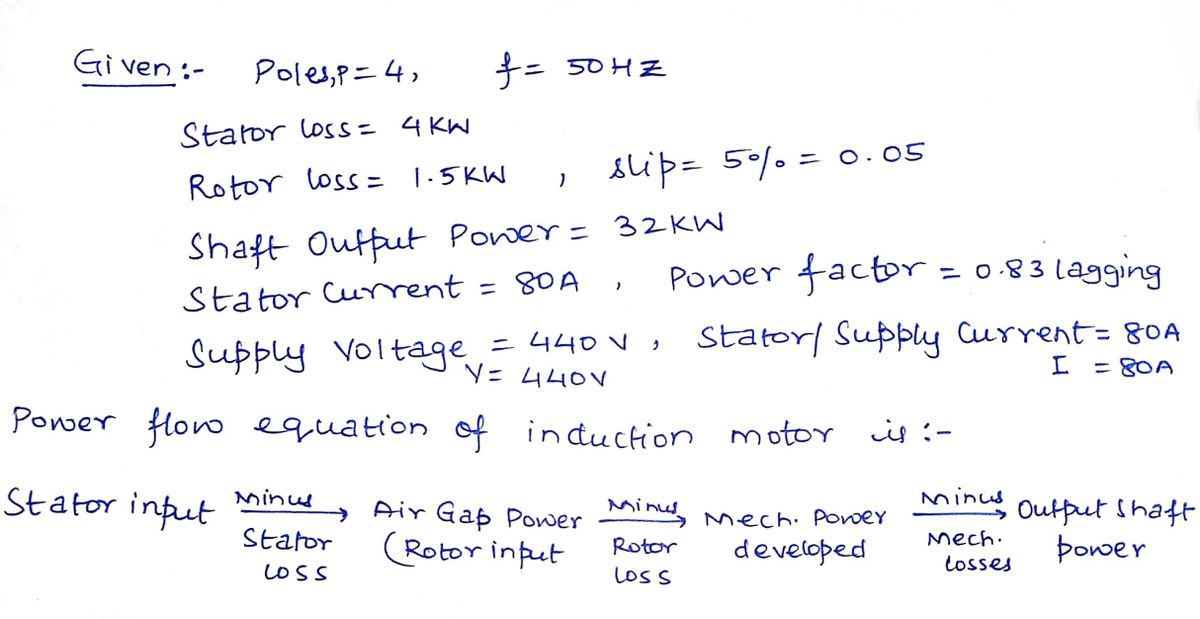 Given :- Poles,P = 4, f = 50HZ
Stator loss = 4 KW
Rotor loss = 1.5KW , slip = 5% = 0.05
Shaft Output Power = 32KW
Stator Current = 80A , Power factor = 0.83 lagging
Supply Voltage = 440 V , Stator/ Supply Current = 80A
V = 440V I = 80A
Power flow equation of induction motor is :-
Stator input minus Stator Loss → Air Gap Power (Rotor input minus Rotor loss → Mech. Power developed minus Mech. losses → Output shaft power